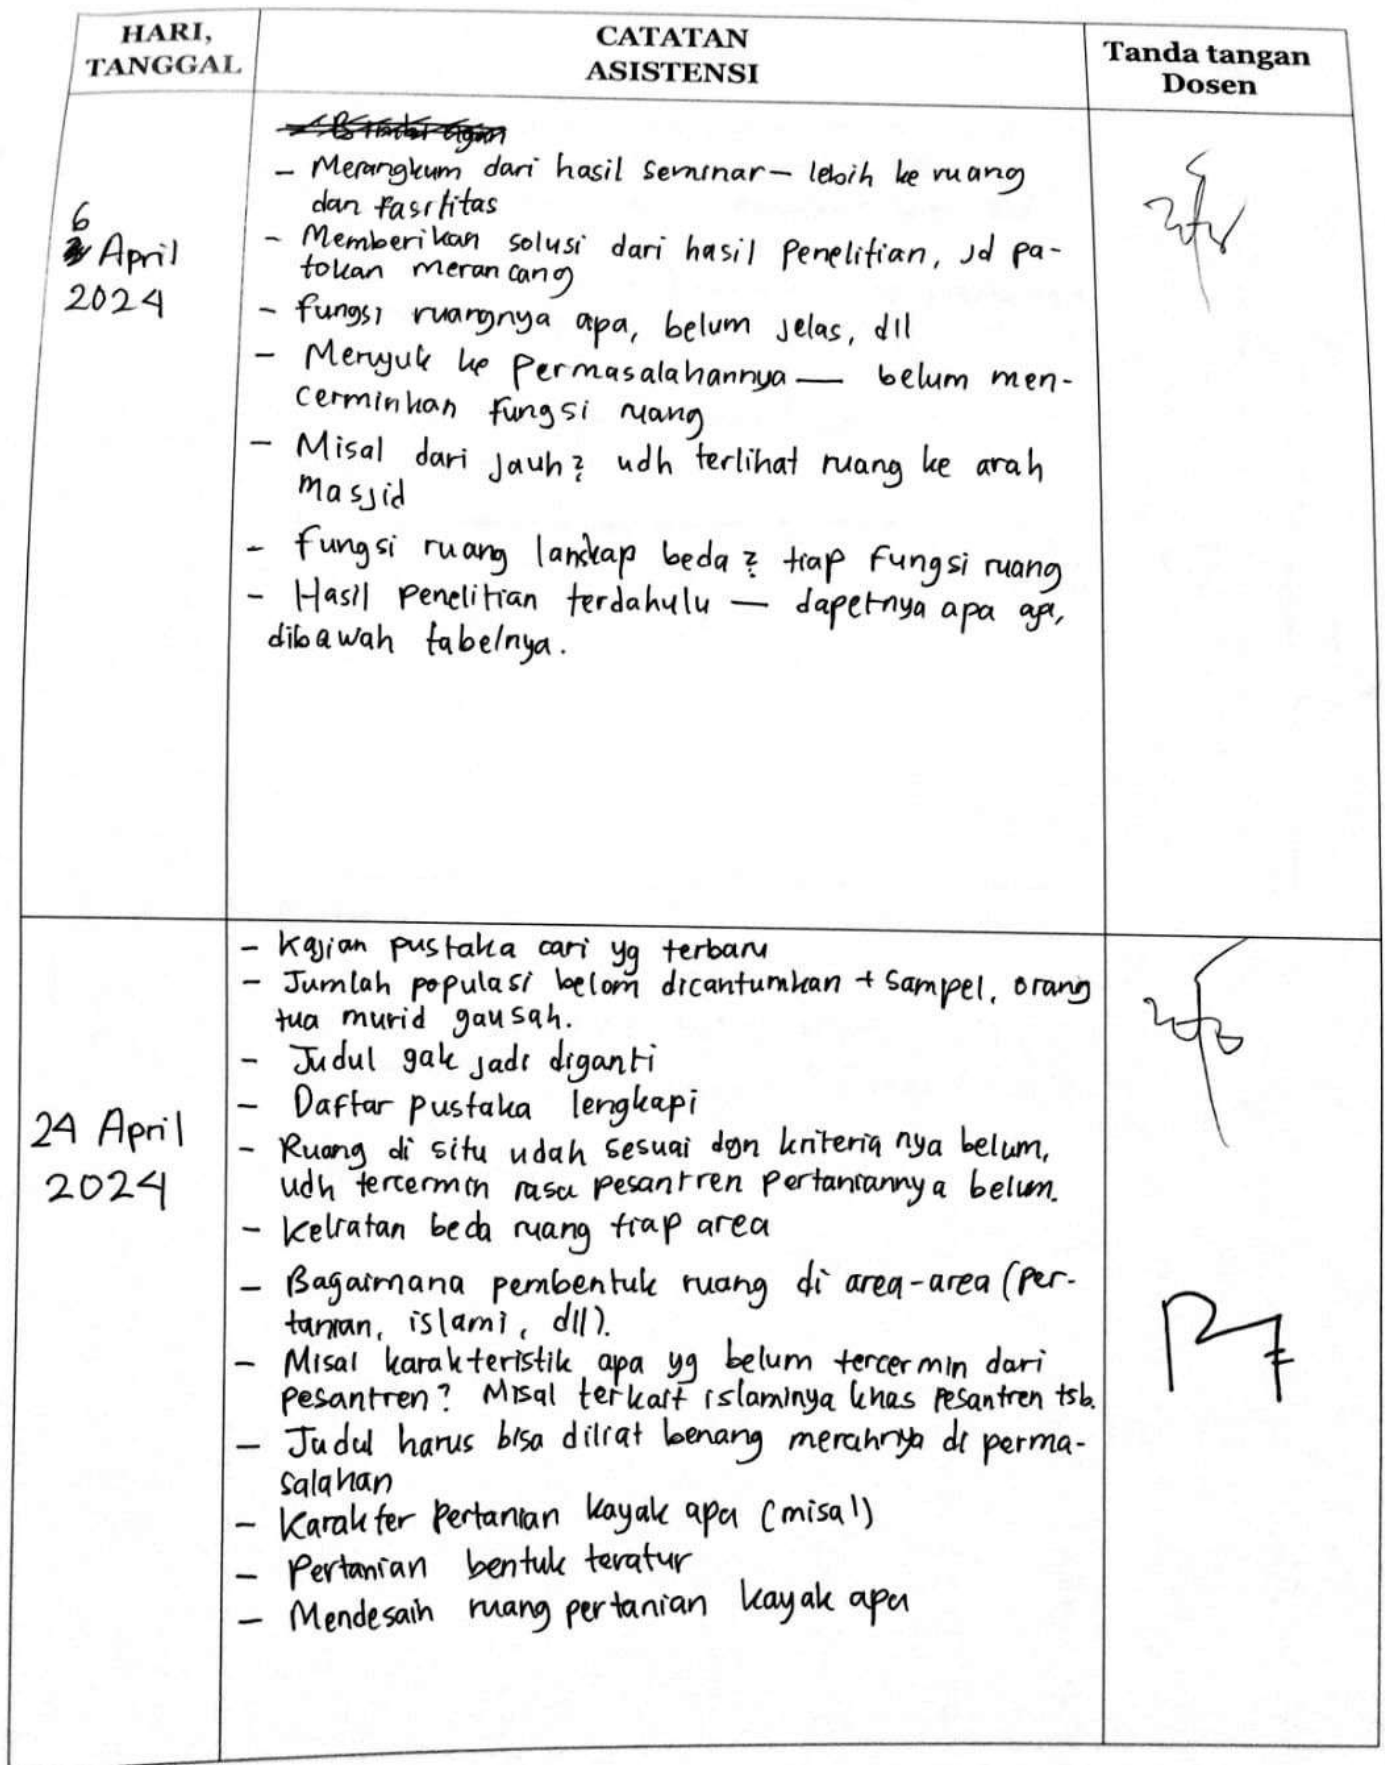 HARI,
TANGGAL
CATATAN
ASISTENSI
Tanda tangan
Dosen
6
April
2024
- Merangkum dari hasil seminar - lebih ke ruang
dan fasilitas
- Memberikan solusi dari hasil Penelitian, jd pa-
tokan merancang
- fungsi ruangnya apa, belum jelas, dll
- Merujuk ke Permasalahannya — belum men-
cerminkan fungsi ruang
- Misal dari jauh2 udh terlihat ruang ke arah
masjid
- fungsi ruang lanskap beda2 tiap fungsi ruang
- Hasil Penelitian terdahulu — dapetnya apa aja,
dibawah tabelnya.
24 April
2024
- Kajian pustaka cari yg terbaru
- Jumlah populasi belom dicantumkan + sampel. orang
tua murid gausah.
- Judul gak jadi diganti
- Daftar pustaka lengkapi
- Ruang di situ udah sesuai dgn kriteria nya belum,
udh tercermin rasa pesantren pertaniannya belum.
- Keliatan beda ruang tiap area
- Bagaimana pembentuk ruang di area-area (per-
tanian, islami, dll).
- Misal karakteristik apa yg belum tercermin dari
pesantren? Misal terkait islaminya khas pesantren tsb.
- Judul harus bisa diliat benang merahnya di perma-
salahan
- Karakter Pertanian kayak apa (misal)
- Pertanian bentuk teratur
- Mendesain ruang pertanian kayak apa